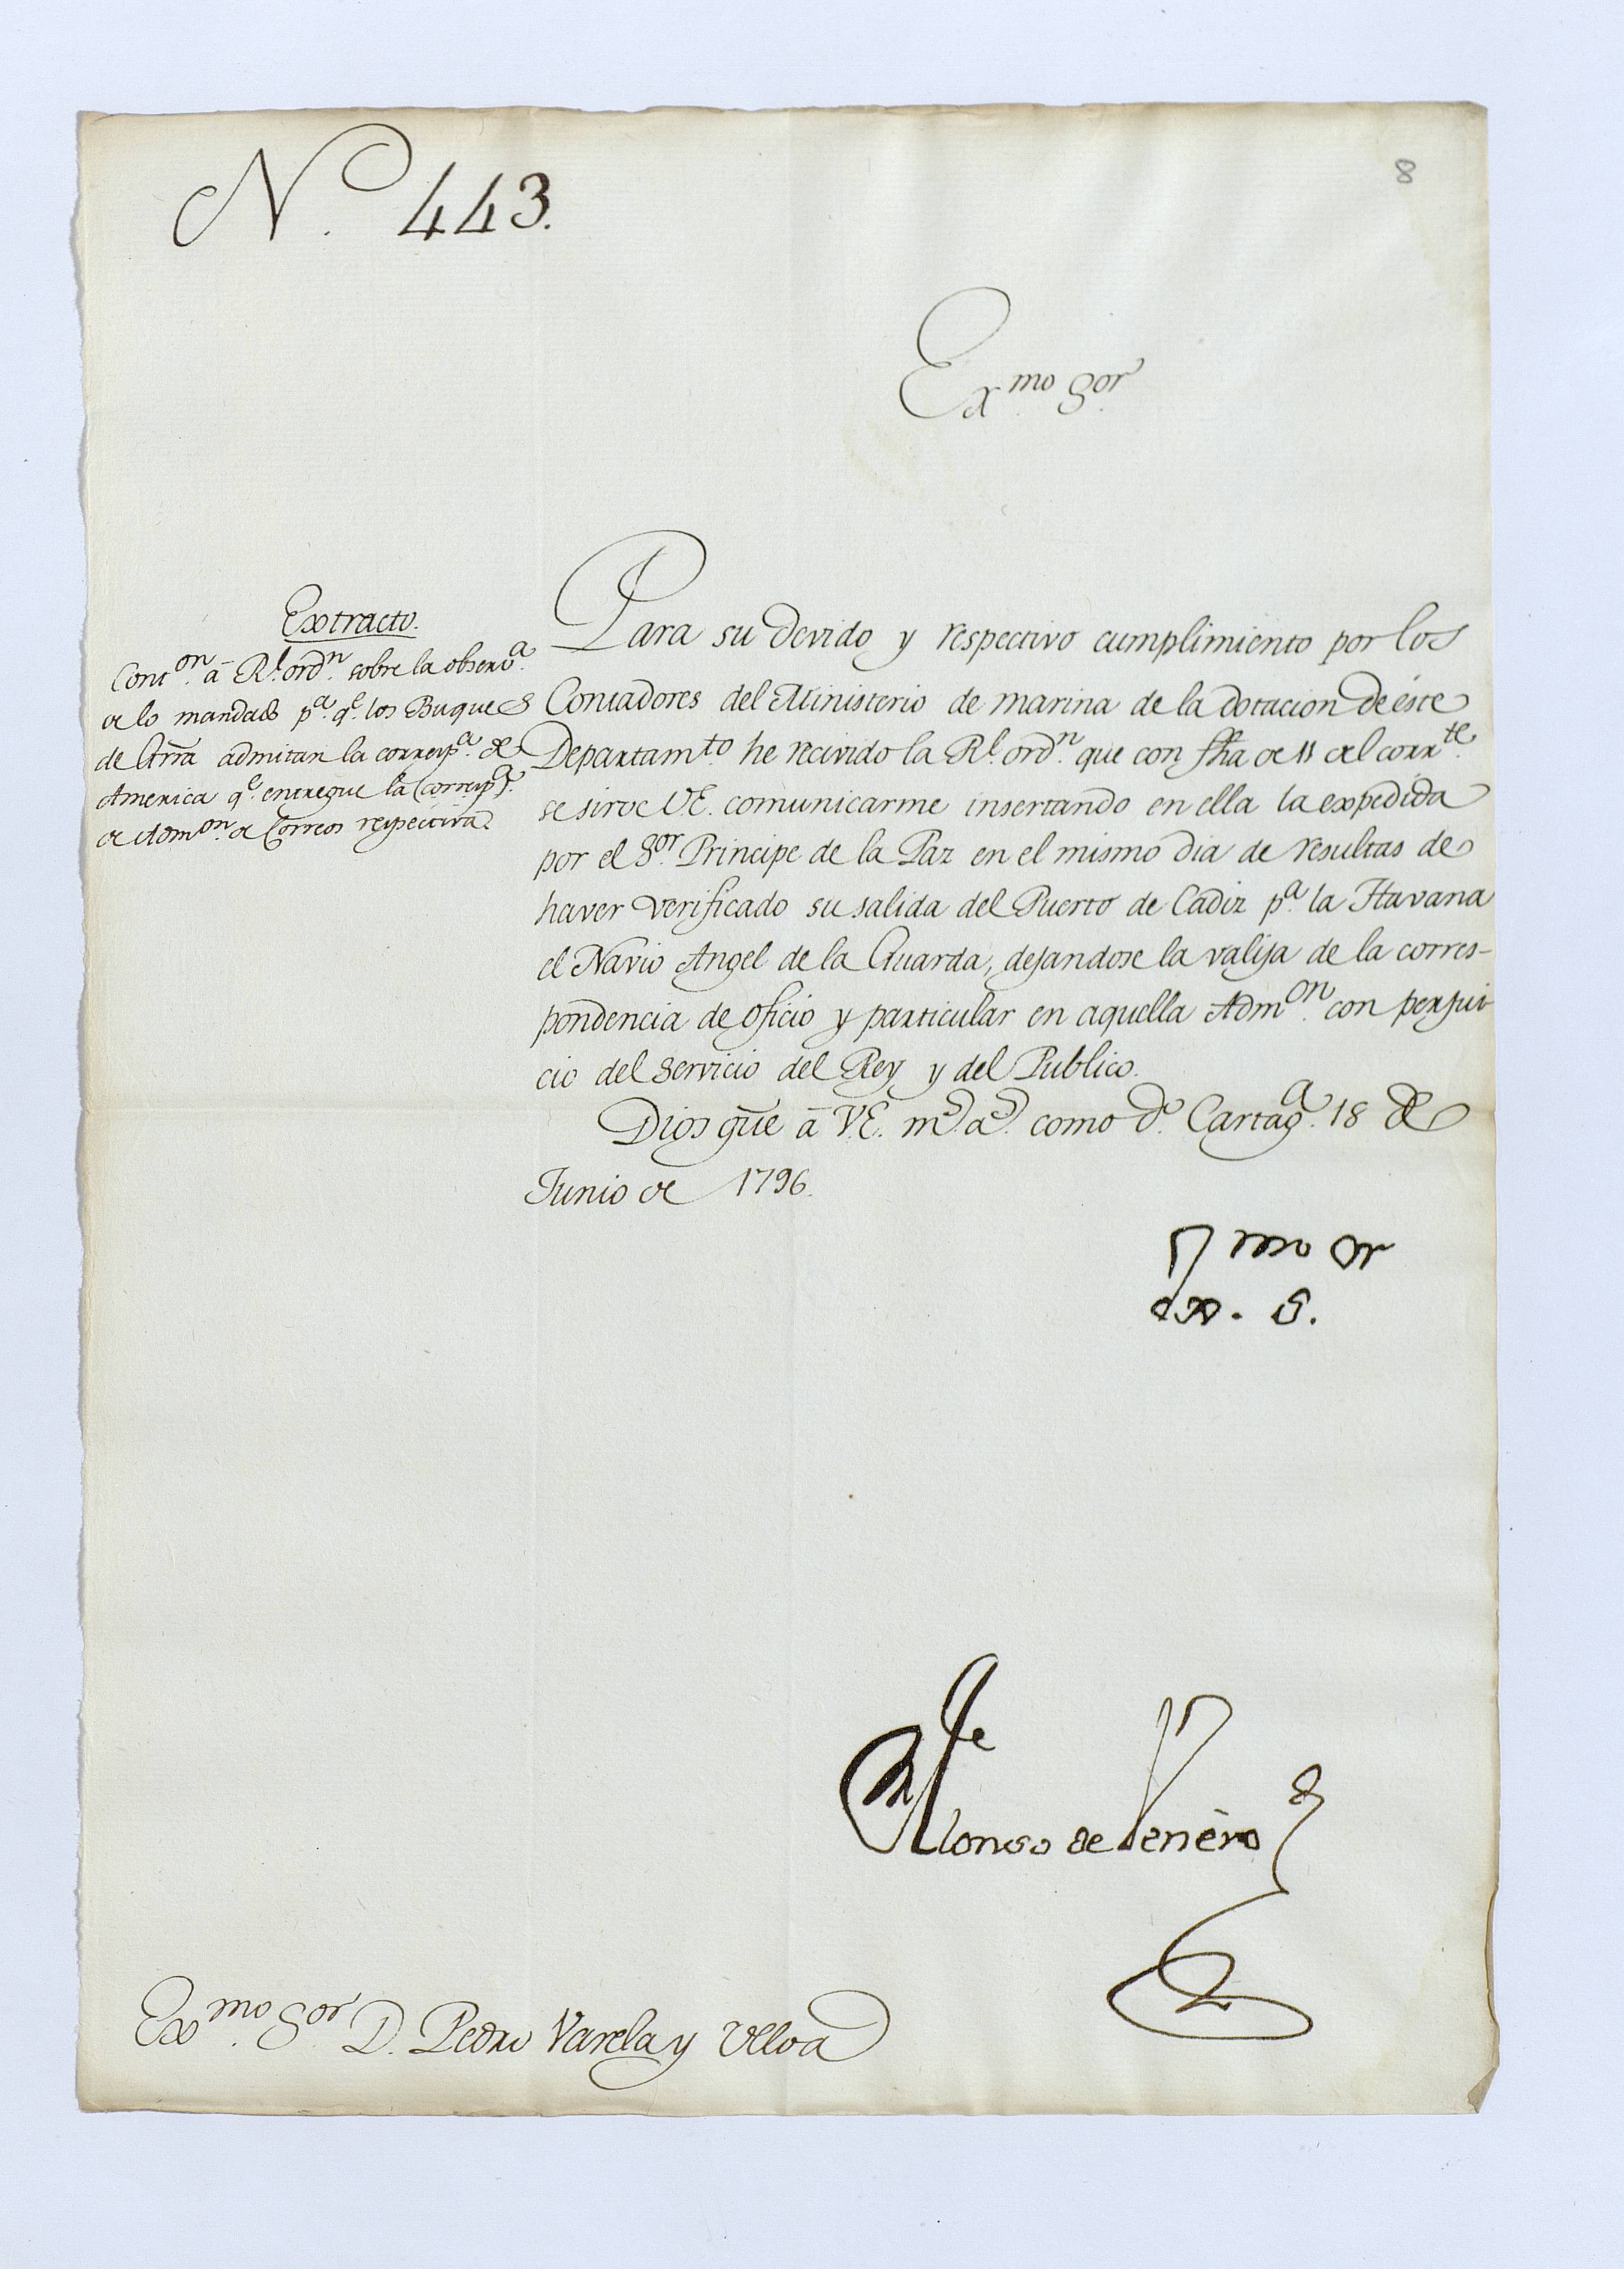 8
Nº. 443.
Exmo. Sor.
Extracto.
Conton. à Rl. ordn. sobre la observa.
de lo mandado pa. qe. los Buques
de Grrā admitan la correspa. de
America qe. entregue la (correspa.)
de Admon. de Correos respectiva.
Para su devido y respectivo cumplimiento por los
Contadores del Ministerio de marina de la dotacion de éste
Departamto. he recivido la Rl. ordn. que con fha de 11 del corrte.
se sirve V.E. comunicarme insertando en ella la expedida
por el Sor. Principe de la Paz en el mismo dia de resultas de
haver verificado su salida del Puerto de Cadiz pa. la Havana
el Navio Angel de la Guarda, dejandose la valija de la corres-
pondencia de oficio y particular en aquella Admon. con perjui-
cio del Servicio del Rey y del Publico.
Dios güe à V.E. ms. as. como do. Cartaga. 18 de
Junio de 1796.
Exmo. Sor.
Alonso de
Exmo. Sor. D. Pedro Varela y Ulloa